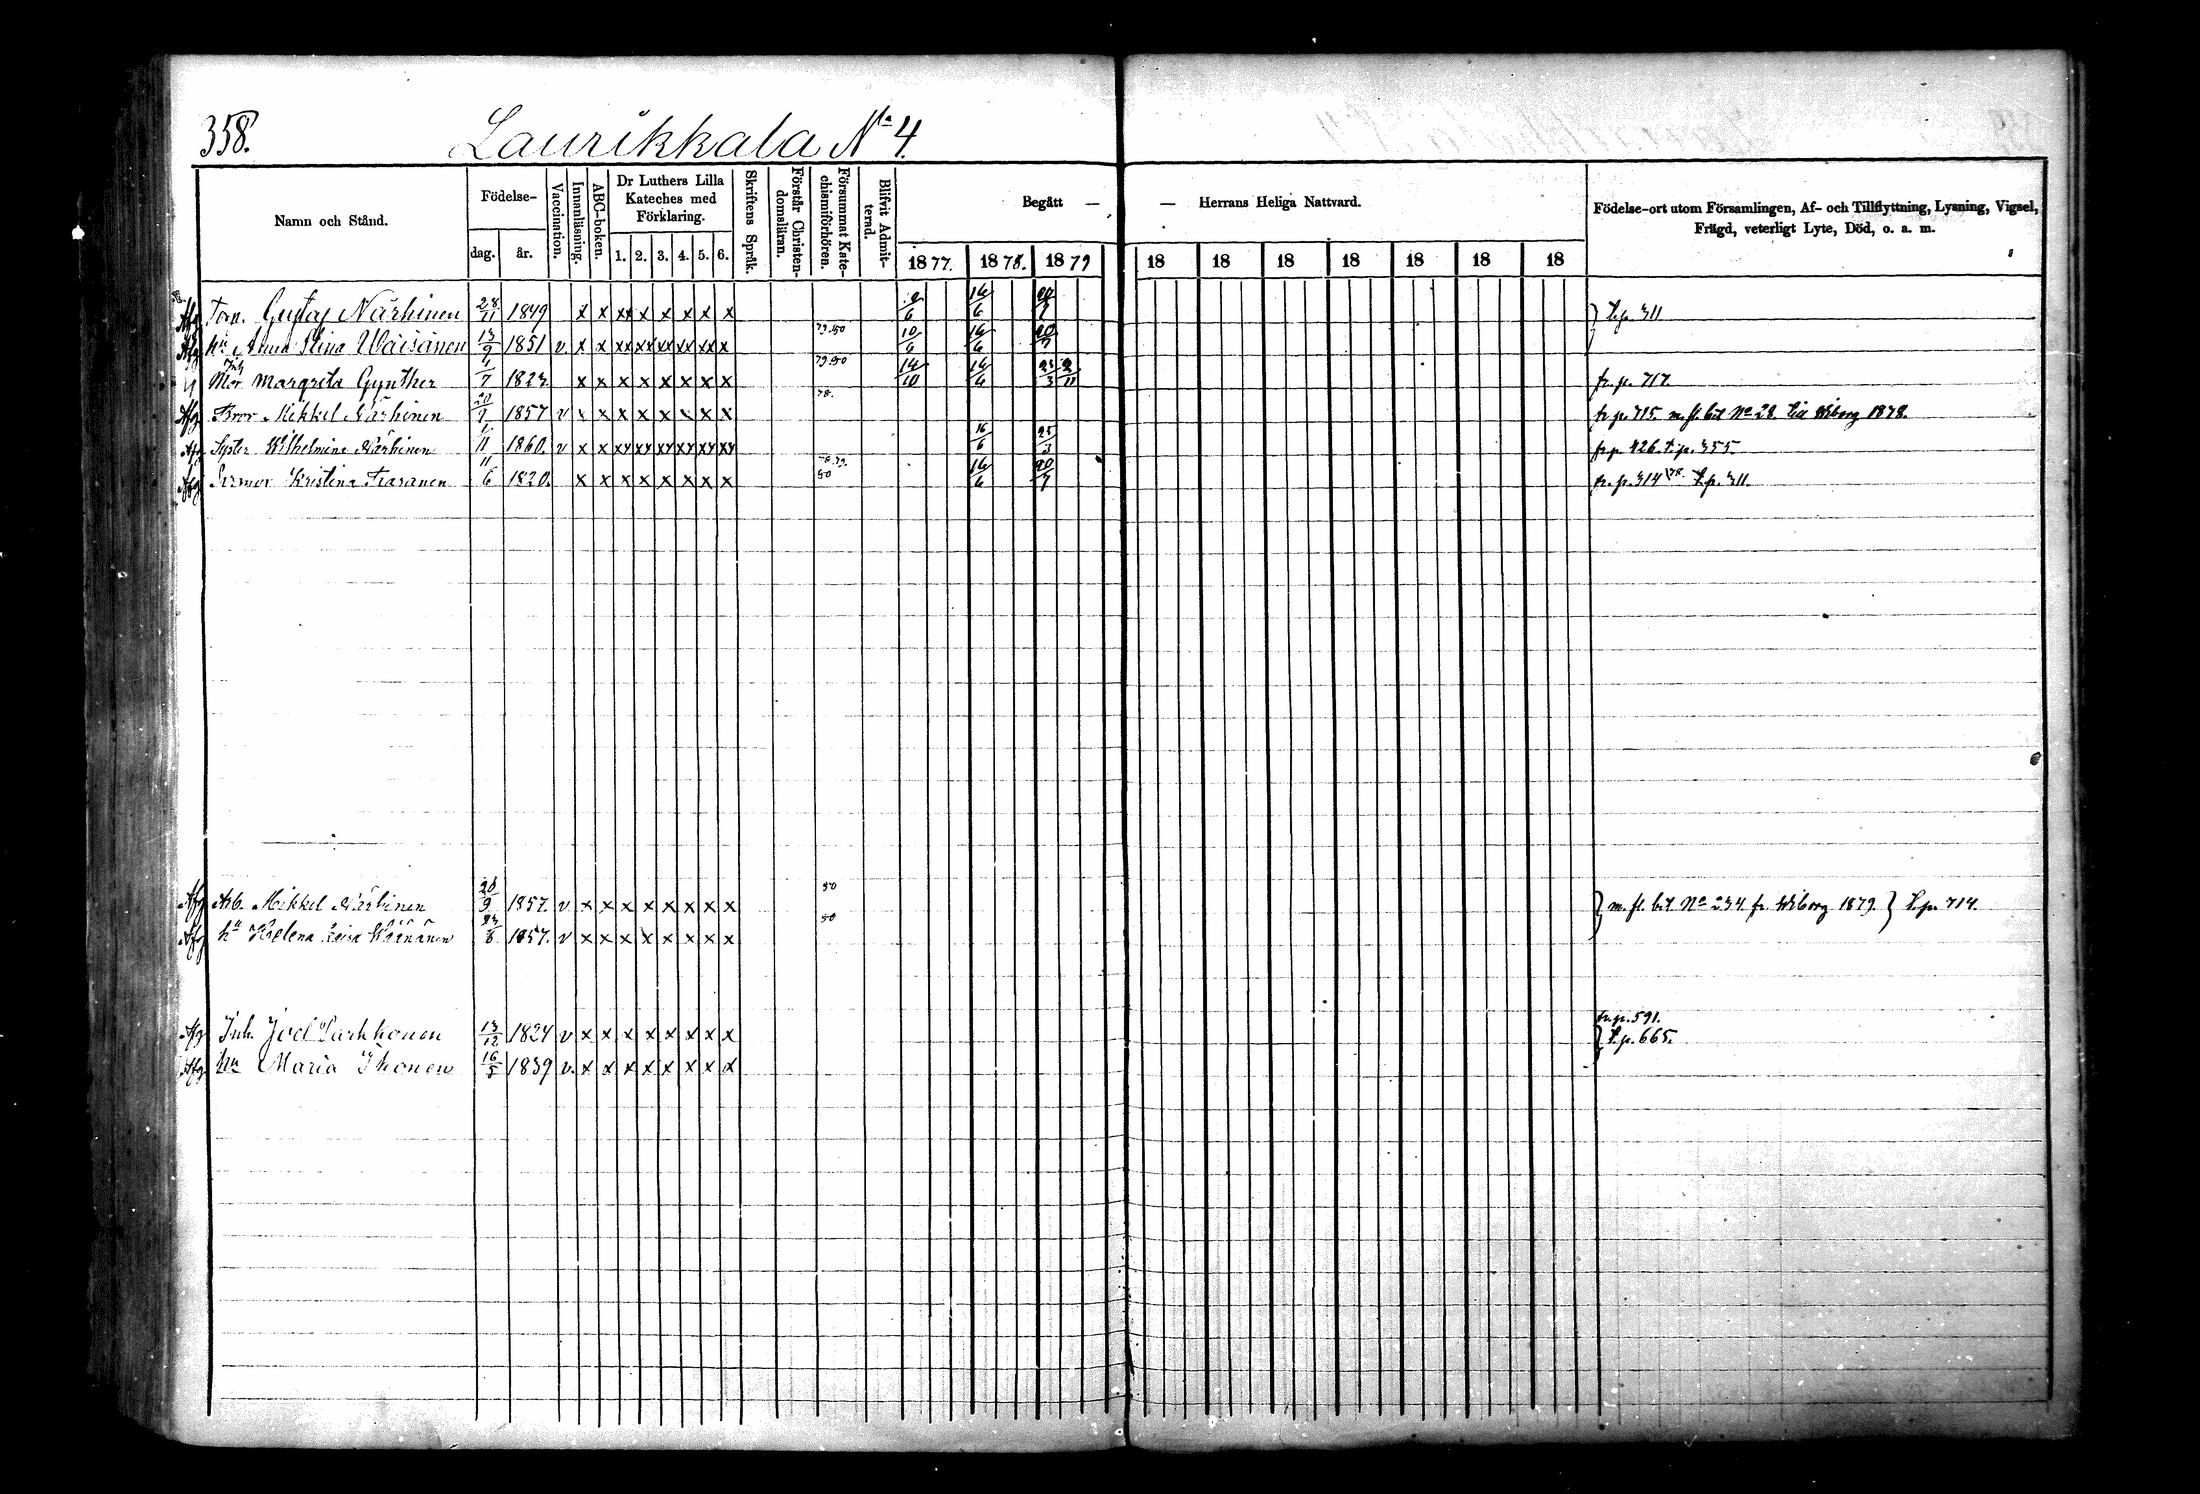 358. Laurikkala Nla 4.
Namn och Stånd.
Födelse-
dag. år.
Vaccination.
Innanläsning.
ABC-boken.
Dr Luthers Lilla Kateches med Förklaring.
1. 2. 3. 4. 5. 6.
Skriftens Språk.
Förstår Christendomsläran.
Försummat Katechismiförhören.
Blifvit Admitterad.
Begått — — Herrans Heliga Nattvard.
1877. 1878. 1879 18 18 18 18 18 18 18
Födelse-ort utom Församlingen, Af- och Tillflyttning, Lysning, Vigsel,
Frägd, veterligt Lyte, Död, o. a. m.
Afg Torp. Gustaf Närhinen 28/11 1849 x x xx x x x x x 9/6 16/6 20/7 } t.p. 311
Afg hu Anna Stina Wäisänen 13/9 1851 v x x xx xx xx xx xx x 79.80 10/6 16/6 20/7
Mor Margreta Gynther 1/7 1823. x x x x x x x x 79.80 14/10 16/6 23/3 2/11 fr. p. 717.
Afg Bror Mikkel Närhinen 20/9 1857 v x x x x x x x x 78. fr. p. 715. m. fl. bet No 28 till Wiborg 1878.
Afg Syster Wilhelmina Närhinen 1/11 1860. v x x xx xx xx xx xx xx 16/6 25/3 fr. p. 426. t. p. 355.
Afg Svrmor Kristina Tiaranen 11/6 1820. x x x x x x x x 78.79. 80 16/6 20/7 fr. p. 314 78. t. p. 311.
Afg Arb. Mikkel Närhinen 20/9 1857. v x x x x x x x x 80 } m. fl. bet No 234 fr. Wiborg 1879. } t. p. 714.
Afg hu Helena Kaisa Wäänänen 23/8 1857. v x x x x x x x x 80
fr. p. 591.
Afg Inh. Joel Parkkonen 13/12 1824 v x x x x x x x x } t. p. 665.
Afg hu Maria Ihonen 16/5 1839 v. x x x x x x x x